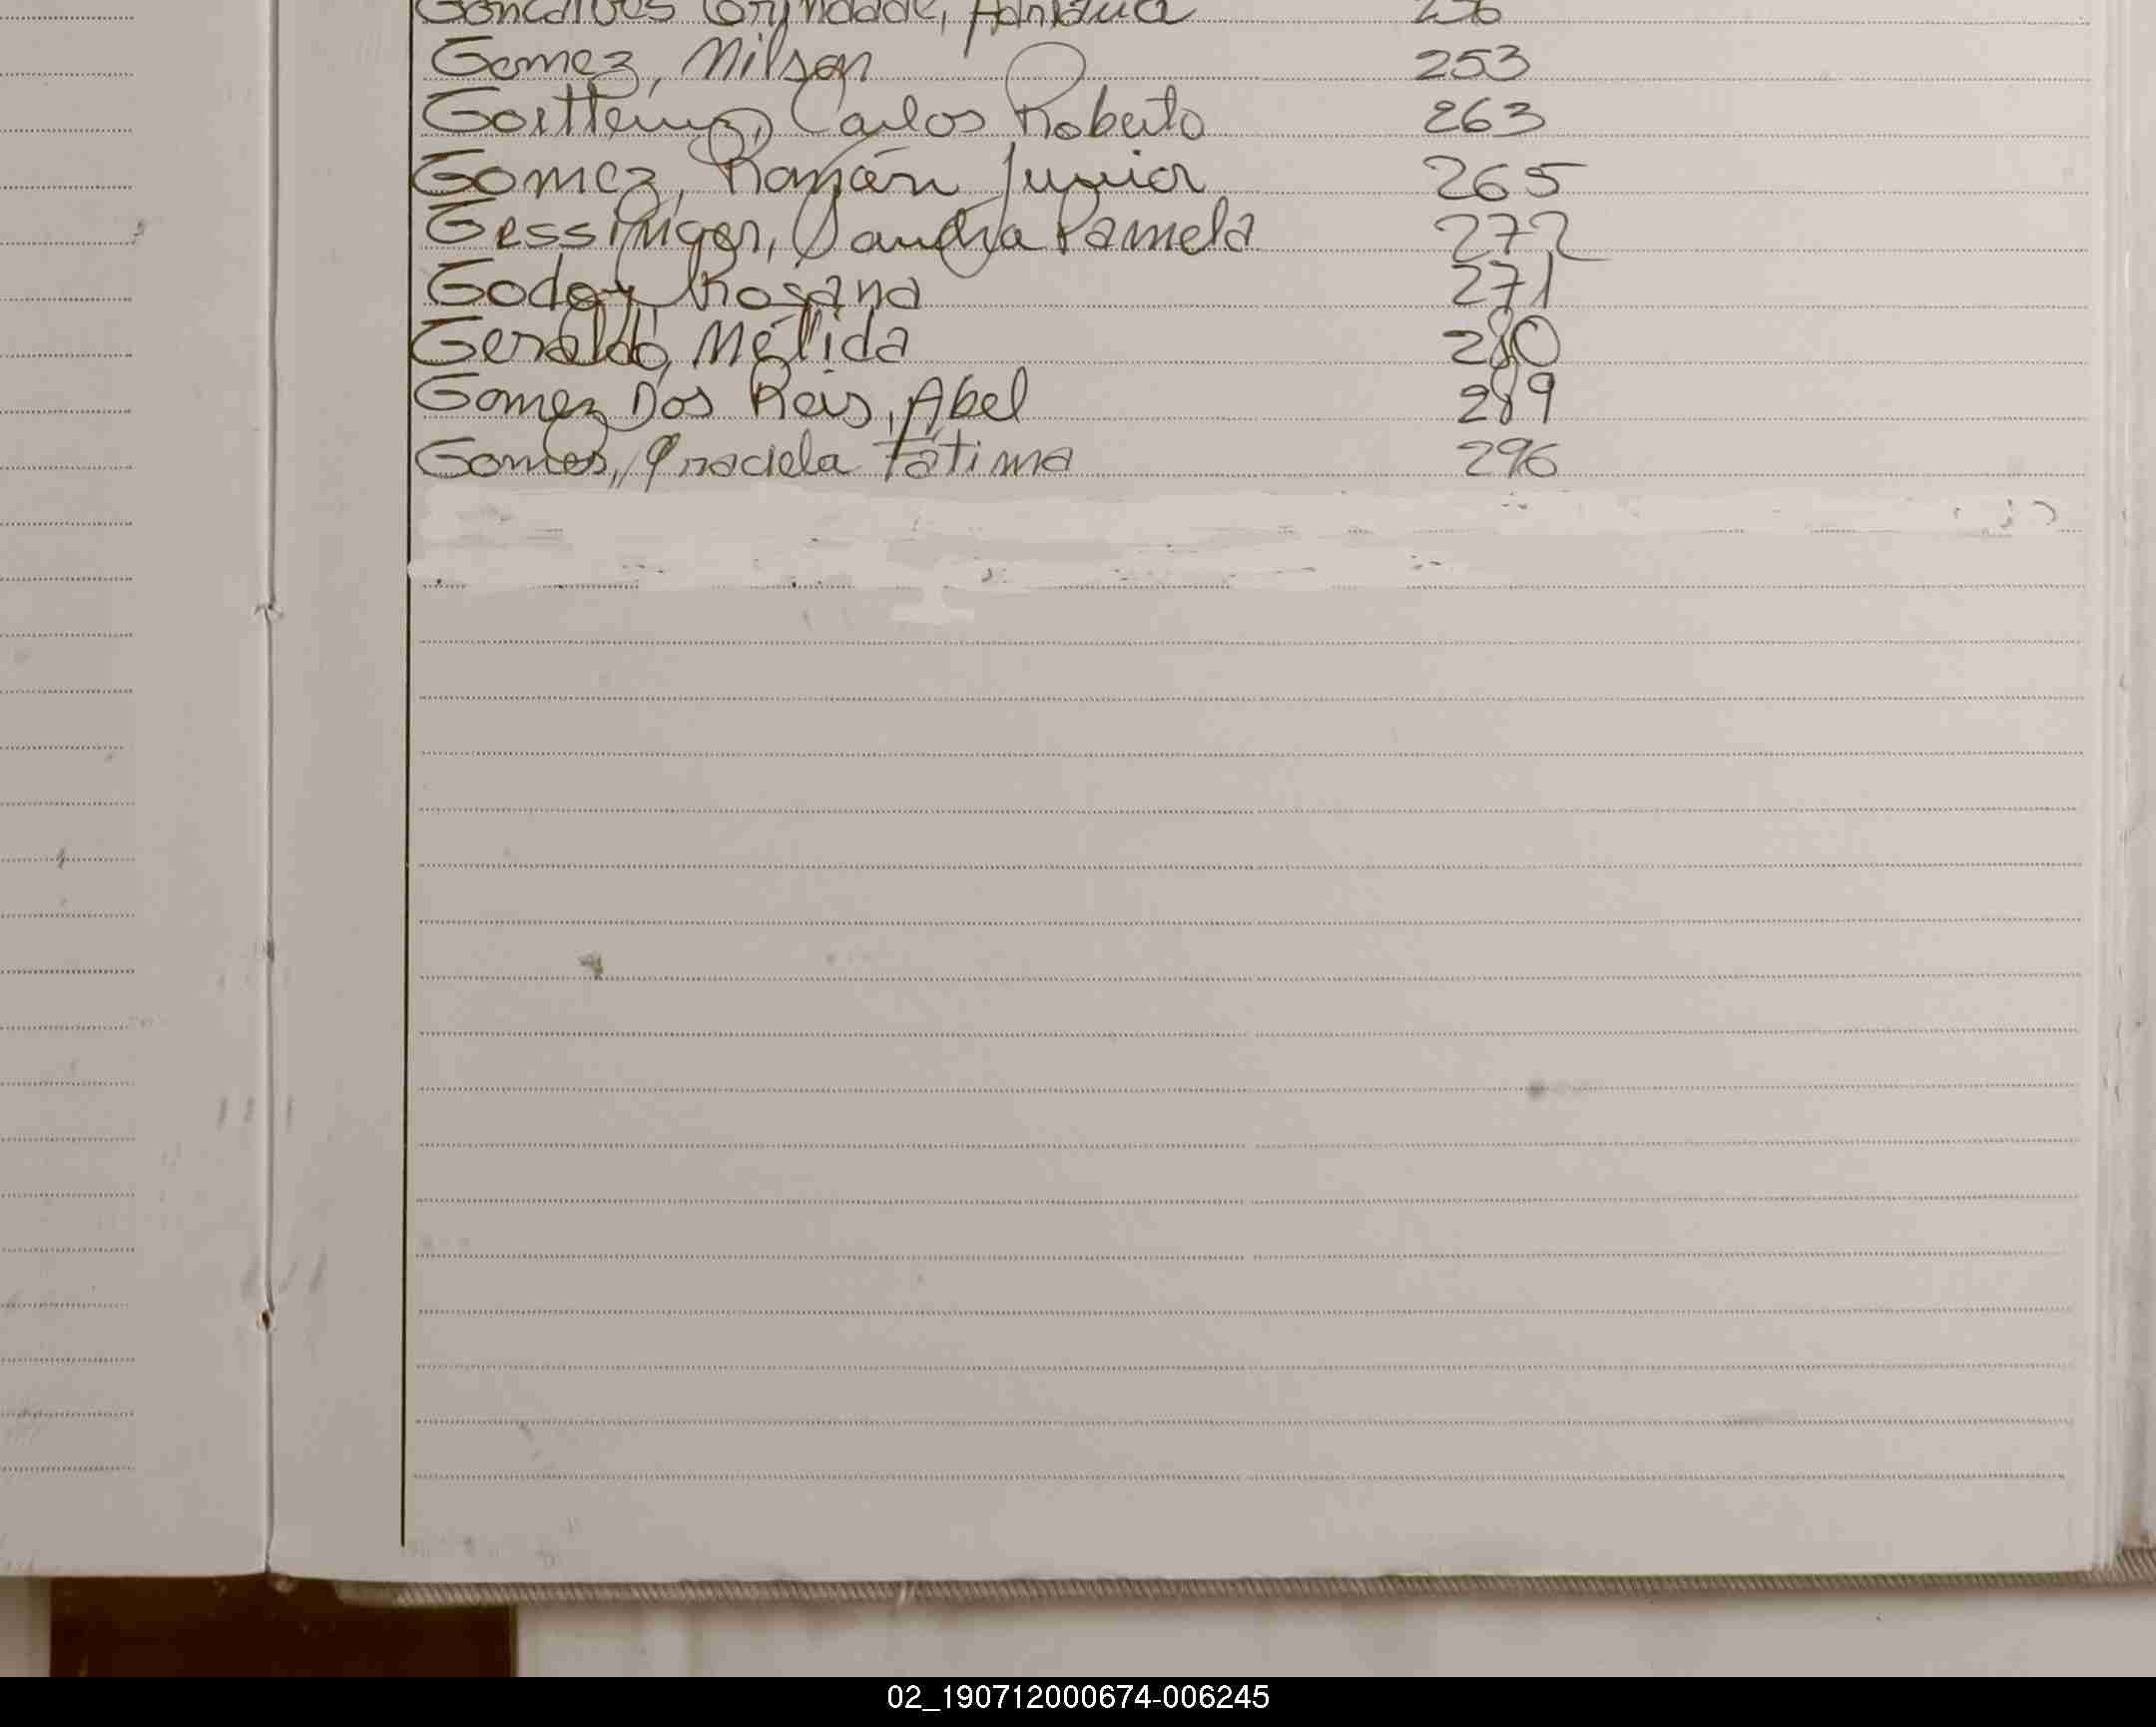 Gomez, Nilson 253
Carlos Roberto 263
Gomez, Ramón Junior 265
Gessinger, Sandra Pamela 272
Godoy Rosana 271
Geraldo, Mélida 280
Gomez Dos Reis, Abel 289
Gomes, Graciela Fátima 296
02_190712000674-006245